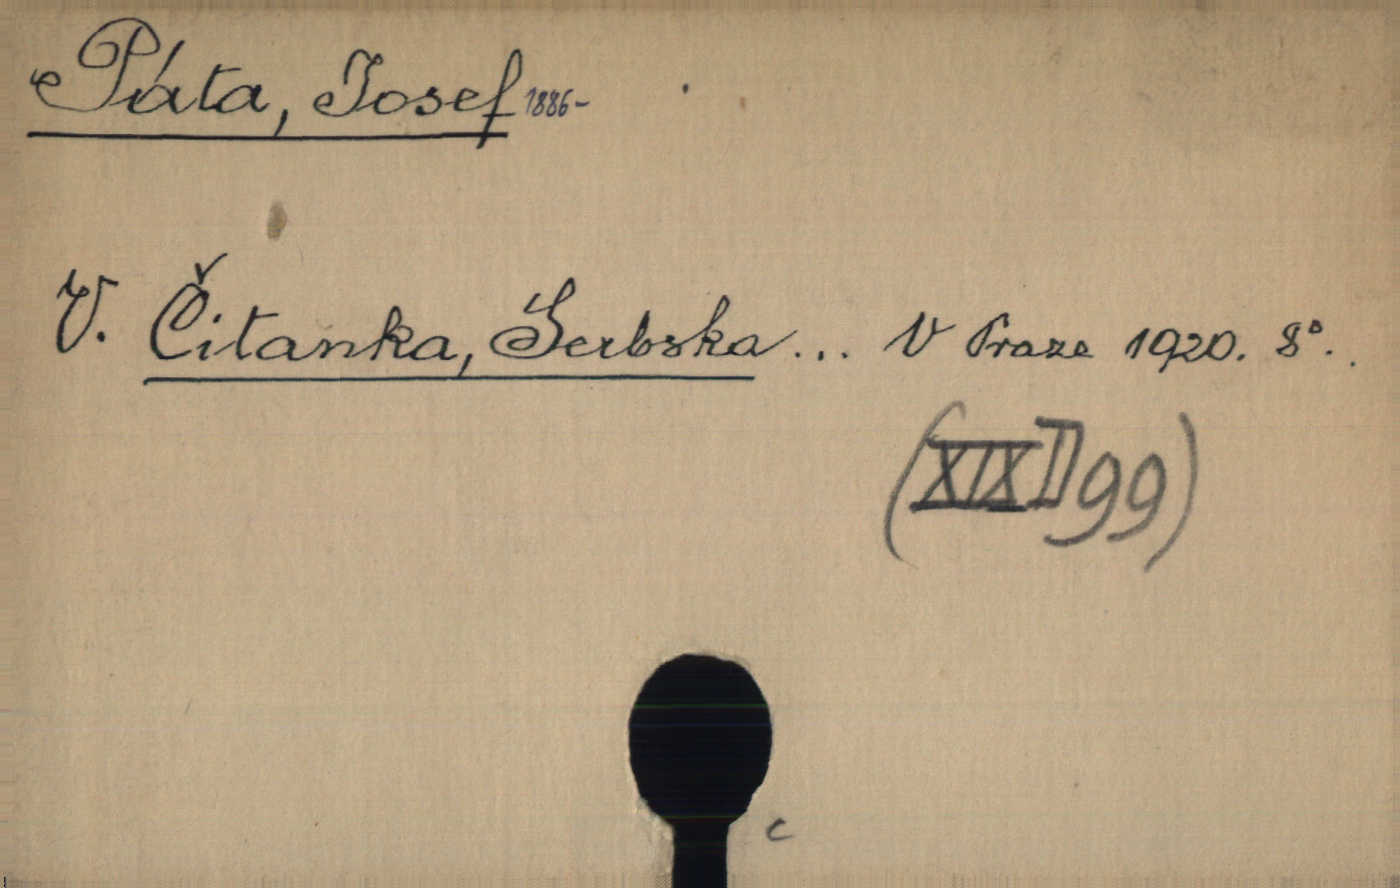 Páta, Josef 1886-
V. Čitanka, Serbska... V Praze 1920. 8°.
(XIX D 99)
c